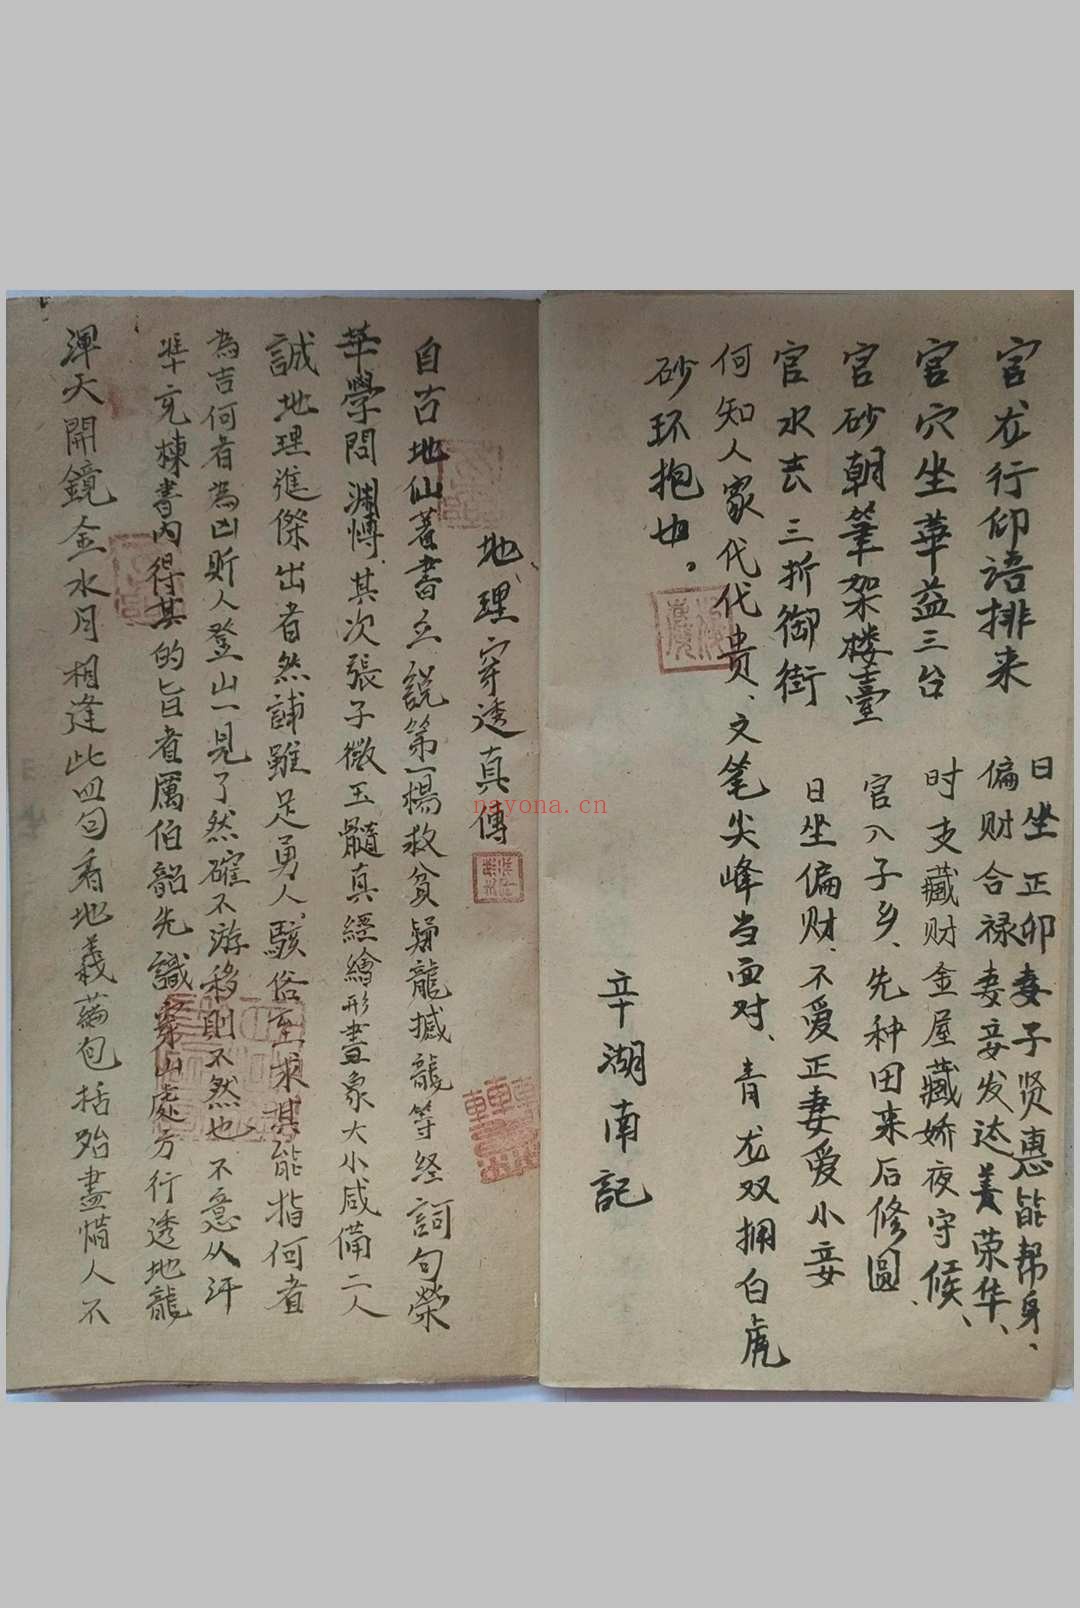 官龙行仰语排来
官穴坐華益三台
官砂朝筆架楼臺
官水去三折御街
日坐正卯妻子贤惠能帮身、
偏财合禄妻妾发达美荣华、
时支藏财金屋藏娇夜守候、
官入子乡、先种田来后修圆、
日坐偏财、不爱正妻爱小妾
何知人家代代贵、文笔尖峰当面对、青龙双拥白虎
砂环抱也。
辛湖南記
地理穿透真傳
自古地仙著書立說第一楊救貧疑龍撼龍等经詞句榮
華學問淵博其次張子微玉髓真經繪形畫象大小咸備二人
誠地理進傑出者然誧雖足勇人駭俗至求其能指何者
為吉何者為凶貯人登山一見了然確不游移則不然也不意从汗
牛充棟書内得其的旨者厲伯韶先識穿山處方行透地龍
渾天開鏡金水月相逢此四句看地義蕴包括殆盡惜人不
nayona.cn